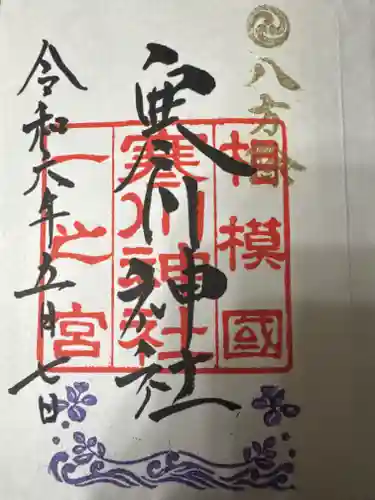 八方除
寒川神社
相模國
寒川神社
一之宮
令和六年五月七日